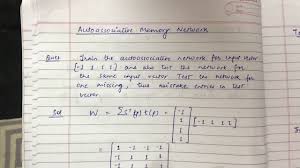 Autoassociative Memory Network
Ques: Train the autoassociative network for input vector
[-1 1 1 1] and also test the network for
the same input vector. Test the network for
one missing, one mistake entries in test
vector.
Sol W = ΣSᵀ(p)t(p) = [-1 1 1 1] [-1 1 1 1]
= [1 -1 -1 -1
-1 1 1 1
-1 1 1 1